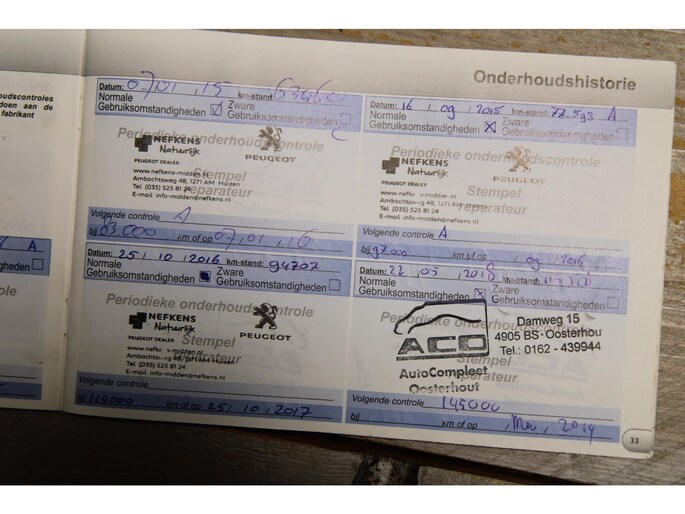 Onderhoudshistorie
oudscontroles
doen aan de
fabrikant
A
heden
Datum: 07,01,15 km-stand: 63460
Normale Zware
Gebruiksomstandigheden Gebruiksomstandigheden
Periodieke onderhoudscontrole
NEFKENS
Natuurlijk
PEUGEOT DEALER
PEUGEOT
nefkens-midden.nl
Ambachtsweg 48, 1271 AM Huizen
Tel (035) 525 81 24
E-mail info-midden@nefkens.nl
Stempel
reparateur
Volgende controle A
bij 83.000 km of op 07,01,16
Datum: 16,09,2015 km-stand: 78.593 A
Normale Zware
Gebruiksomstandigheden X Gebruiksomstandigheden
Periodieke onderhoudscontrole
NEFKENS
Natuurlijk
PEUGEOT DEALER
PEUGEOT
Ambachtsweg 48, 1271 AM Huizen
Tel (035) 525 81 24
E-mail info-midden@nefkens.nl
Stempel
reparateur
Volgende controle A
bij 98.000 km of op , 09, 2016
Datum: 25,10,2016 km-stand: 94707
Normale Zware
Gebruiksomstandigheden Gebruiksomstandigheden
Periodieke onderhoudscontrole
NEFKENS
Natuurlijk
PEUGEOT DEALER
PEUGEOT
Ambachtsweg 48, 1271 AM Huizen
Tel (035) 525 81 24
E-mail info-midden@nefkens.nl
Stempel
reparateur
Volgende controle
bij 114000 km of op 25,10,2017
Datum: 22,05,2018 km-stand:
Normale Zware
Gebruiksomstandigheden X Gebruiksomstandigheden
Periodieke onderhoudscontrole
ACO
Damweg 15
4905 BS-Oosterhou
Tel.: 0162 - 439944
AutoCompleet
Oosterhout
Stempel
reparateur
Volgende controle 145000
bij km of op Mei, 2019
33